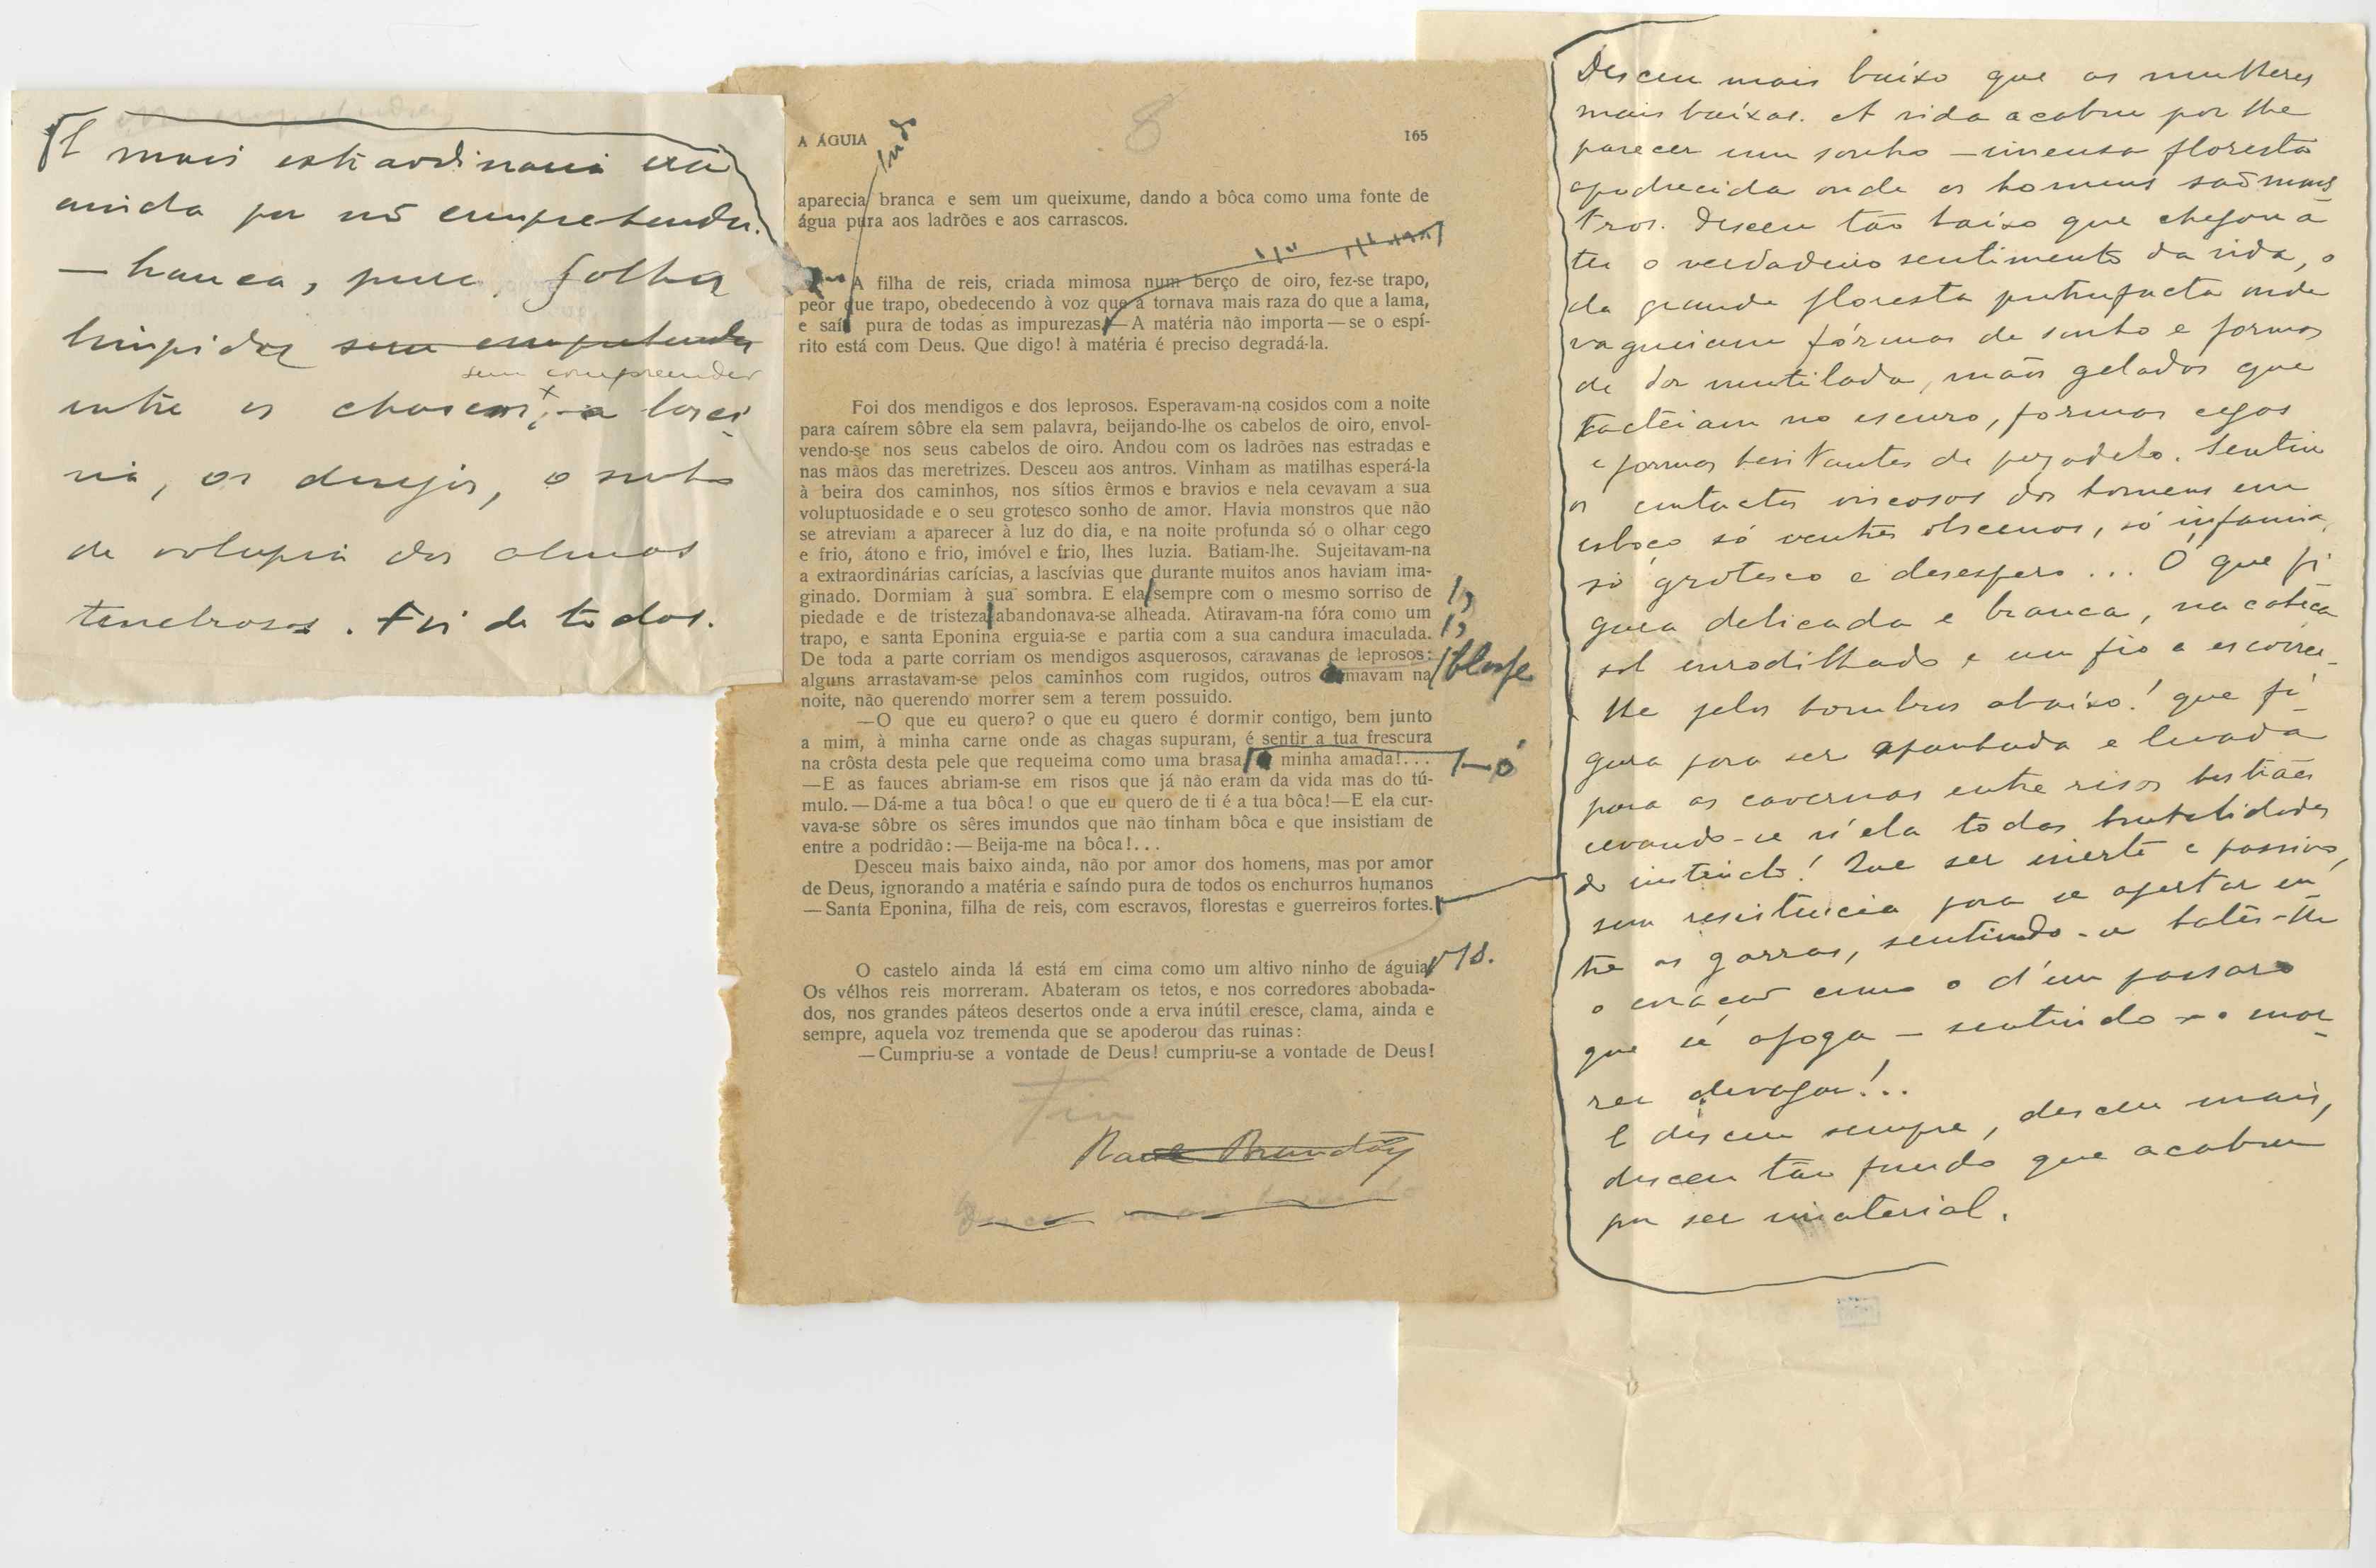 E mais extraordinaria era
ainda por não comprehender.
— branca, pura, folhas
limpidas sem comprehender
sem comprehender
entre os chascos, a lasci-
via, os desejos, o sonho
de volupia das almas
tenebrosas. Foi de todos.
8
A ÁGUIA
165
aparecia branca e sem um queixume, dando a bôca como uma fonte de
água pura aos ladrões e aos carrascos.
A filha de reis, criada mimosa num berço de oiro, fez-se trapo,
peor que trapo, obedecendo à voz que a tornava mais raza do que a lama,
e saíu pura de todas as impurezas.—A matéria não importa—se o espí-
rito está com Deus. Que digo! à matéria é preciso degradá-la.
Foi dos mendigos e dos leprosos. Esperavam-na cosidos com a noite
para caírem sôbre ela sem palavra, beijando-lhe os cabelos de oiro, envol-
vendo-se nos seus cabelos de oiro. Andou com os ladrões nas estradas e
nas mãos das meretrizes. Desceu aos antros. Vinham as matilhas esperá-la
à beira dos caminhos, nos sítios êrmos e bravios e nela cevavam a sua
voluptuosidade e o seu grotesco sonho de amor. Havia monstros que não
se atreviam a aparecer à luz do dia, e na noite profunda só o olhar cego
e frio, átono e frio, imóvel e frio, lhes luzia. Batiam-lhe. Sujeitavam-na
a extraordinárias carícias, a lascívias que durante muitos anos haviam ima-
ginado. Dormiam à sua sombra. E ela sempre com o mesmo sorriso de
piedade e de tristeza abandonava-se alheada. Atiravam-na fóra como um
trapo, e santa Eponina erguia-se e partia com a sua candura imaculada.
De toda a parte corriam os mendigos asquerosos, caravanas de leprosos:
alguns arrastavam-se pelos caminhos com rugidos, outros mavam na
/blasfe
noite, não querendo morrer sem a terem possuido.
—O que eu quero? o que eu quero é dormir contigo, bem junto
a mim, à minha carne onde as chagas supuram, é sentir a tua frescura
na crôsta desta pele que requeima como uma brasa minha amada!...
ó
—E as fauces abriam-se em risos que já não eram da vida mas do tú-
mulo.—Dá-me a tua bôca! o que eu quero de ti é a tua bôca!—E ela cur-
vava-se sôbre os sêres imundos que não tinham bôca e que insistiam de
entre a podridão:—Beija-me na bôca!...
Desceu mais baixo ainda, não por amor dos homens, mas por amor
de Deus, ignorando a matéria e saíndo pura de todos os enchurros humanos
—Santa Eponina, filha de reis, com escravos, florestas e guerreiros fortes.
O castelo ainda lá está em cima como um altivo ninho de águia
/s.
Os vélhos reis morreram. Abateram os tetos, e nos corredores abobada-
dos, nos grandes páteos desertos onde a erva inútil cresce, clama, ainda e
sempre, aquela voz tremenda que se apoderou das ruinas:
—Cumpriu-se a vontade de Deus! cumpriu-se a vontade de Deus!
Fim
Raul Brandão
Desceu mais baixo que as mulheres
mais baixas. A vida acabou por lhe
parecer um sonho — imensa floresta
apodrecida onde os homens são mons-
tros. Desceu tão baixo que chegou a
ter o verdadeiro sentimento da vida, o
da grande floresta putrefacta onde
vagueiam fórmas de sonho e formas
de dor mutilada, mãos geladas que
tacteiam no escuro, formas cegas
e formas hesitantes de pezadelo. Sentiu
os contactos viscosos dos homens em
esboço só ventres obscenos, só infamia,
só grotesco e desespero... O que fi-
gura delicada e branca, na cabeça
sol enrodilhado e um fio a escorrer-
lhe pelos hombros abaixo! que fi-
gura para ser apontada e levada
para as cavernas entre risos bestiaes
cevando-se n'ela todas brutalidades
do instincto! Que ser inerte e passivo,
sem resistencia para se apertar en-
tre as garras, sentindo-se bater-lhe
o coração como o d'um passaro
que se afoga — sentindo-o mor-
rer devagar!..
E desceu sempre, desceu mais,
desceu tão fundo que acabou
por ser imaterial.